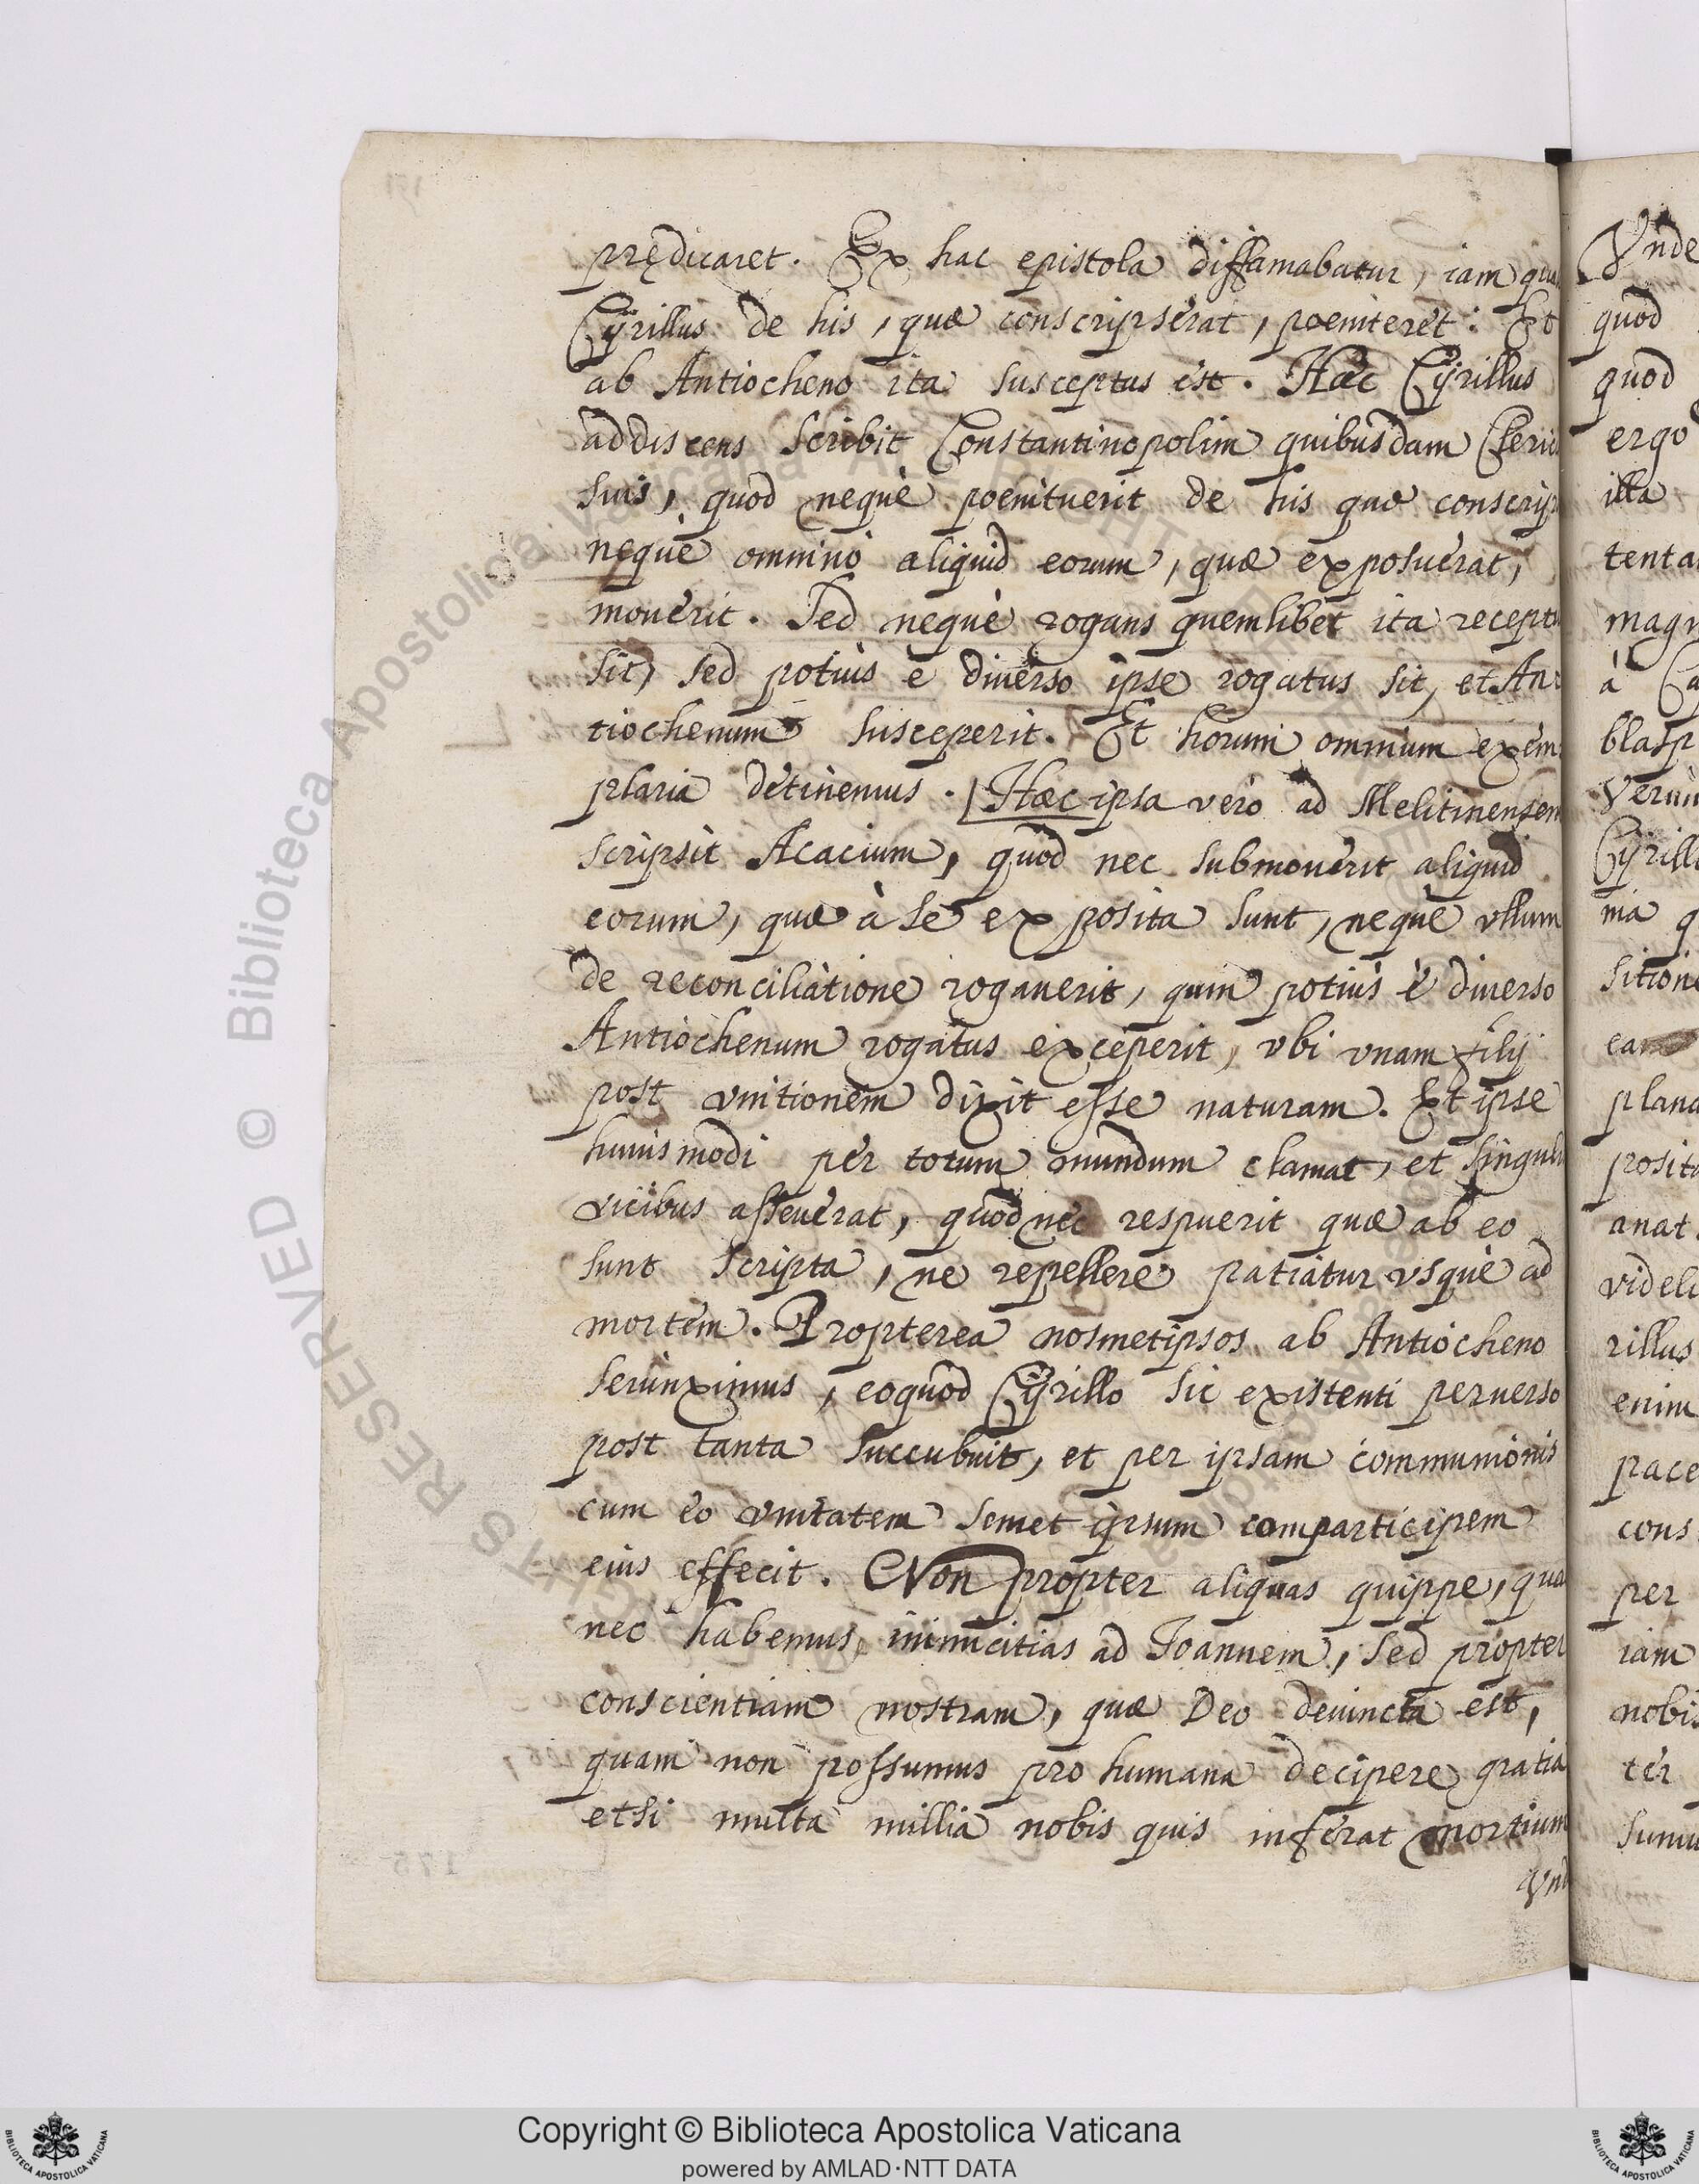 prędicaret. Ex hac epistola diffamabatur, iam qua
Cÿrillus de his, quæ conscripserat, poeniteret: Et
ab Antiocheno ita susceptus est. Hæc Cÿrillus
addiscens scribit Constantinopolim quibusdam Cleric
suis, quod neque poenituerit de his quæ conscrip
neque omnino aliquid eorum, quæ exposuerat,
mouerit. Sed neque rogans quemlibet ita recept
sit, sed potius è diuerso ipse rogatus sit, et An:
tiochenum susceperit. Et horum omnium exem
plaria detinemus. Hæc ipsa vero ad Melitinensem
scripsit Acacium, quod nec submouerit aliquid
eorum, quæ à se exposita sunt, neque vllum
de reconciliatione rogauerit, quin potius è diuerso
Antiochenum rogatus exceperit, vbi vnam filij
post vnitionem dixit esse naturam. Et ipse
huiusmodi per totum mundum clamat, et singul
vicibus asseuerat, quod nec respuerit quæ ab eo
sunt scripta, ne repellere patiatur vsque ad
mortem. Propterea nosmetipsos ab Antiocheno
seiunximus, eoquod Cÿrillo sic existenti peruerso
post tanta succubuit, et per ipsam communionis
cum eo vnitatem semet ipsum comparticipem
eius effecit. Non propter aliquas quippe, qua
nec habemus, inimicitias ad Ioannem, sed propter
conscientiam nostram, quæ Deo deuincta est,
quam non possumus pro humana decipere gratia
etsi multa millia nobis quis inferat mortium
Vnd
Vnde
quod
quod
ergo
illa
tenta
magn
à Ca
blasp
Verùm
Cÿrill
ma q
sitione
eam
plana
posita
anat.
videli
rillus
enim
pace
cons
per
iam
nobis
ter
sumu
RIGHTS RESERVED © Biblioteca Apostolica Vaticana
Copyright © Biblioteca Apostolica Vaticana
powered by AMLAD·NTT DATA
BIBLIOTECA APOSTOLICA VATICANA
BIBLIOTECA APOSTOLICA VATICANA